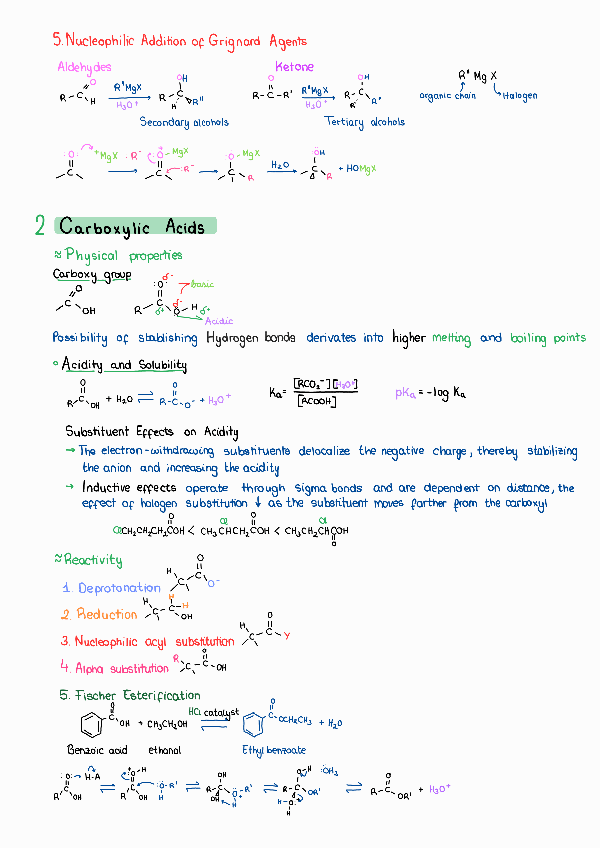 5. Nucleophilic Addition of Grignard Agents
Aldehydes Ketone
R' Mg X
organic chain Halogen
R-C O H R'MgX H₃O⁺ R-C OH H R''
R-C-R' O R'MgX H₃O⁺ R-C OH R' R''
Secondary alcohols Tertiary alcohols
:O: C ⁺MgX :R⁻ O-MgX C :R⁻ O-MgX C R H₂O :OH C R + HOMgX
2 Carboxylic Acids
≈ Physical properties
Carboxy group
C O OH
R-C :O: δ⁻ basic
δ⁺ O δ⁻ H δ⁺ Acidic
Possibility of stablishing Hydrogen bonds derivates into higher melting and boiling points
° Acidity and Solubility
R-C O OH + H₂O ⇌ R-C O O⁻ + H₃O⁺ Ka= [RCO₂⁻][H₃O⁺] / [RCOOH] pKa = -log Ka
Substituent Effects on Acidity
→ The electron-withdrawing substituents delocalize the negative charge, thereby stabilizing
the anion and increasing the acidity
→ Inductive effects operate through sigma bonds and are dependent on distance, the
effect of halogen substitution ↓ as the substituent moves farther from the carboxyl
ClCH₂CH₂CH₂COH O < CH₃CHCH₂COH Cl O < CH₃CH₂CHCOH Cl O
≈ Reactivity
1. Deprotonation H C C O O⁻
2. Reduction H C C H H OH
3. Nucleophilic acyl substitution H C C O Y
4. Alpha substitution R C C O OH
5. Fischer Esterification
C O OH + CH₃CH₂OH HCl catalyst ⇌ C O OCH₂CH₃ + H₂O
Benzoic acid ethanol Ethyl benzoate
:O: H-A R C OH ⇌ ⁺O-H R C OH :O-R' H ⇌ OH R-C OH O⁺-R' H ⇌ O-H :OH₂ R-C OR' H-O⁺ H ⇌ R-C O OR' + H₃O⁺